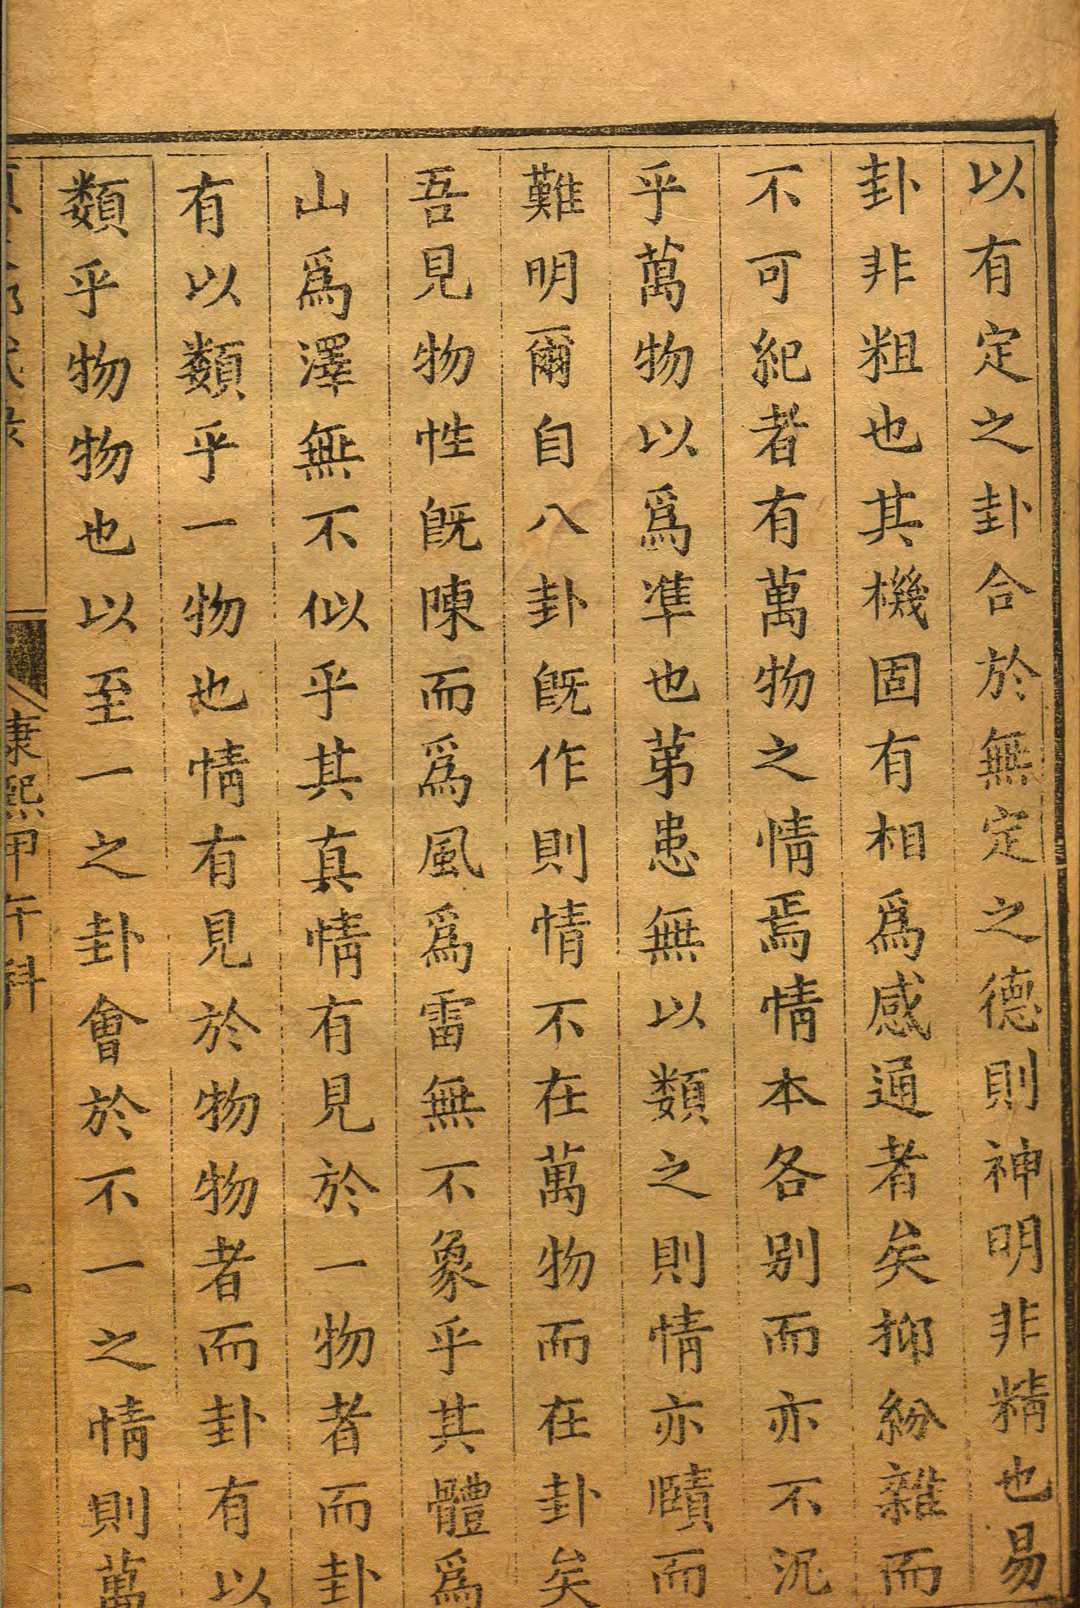 以有定之卦合於無定之德則神明非精也易
卦非粗也其機固有相爲感通者矣抑紛雜而
不可紀者有萬物之情焉情本各别而亦不沉
乎萬物以爲準也第患無以類之則情亦賾而
難明爾自八卦旣作則情不在萬物而在卦矣
吾見物性旣陳而爲風爲雷無不象乎其體爲
山爲澤無不似乎其真情有見於一物者而卦
有以類乎一物也情有見於物物者而卦有以
類乎物物也以至一之卦會於不一之情則萬
康熙甲午科
一